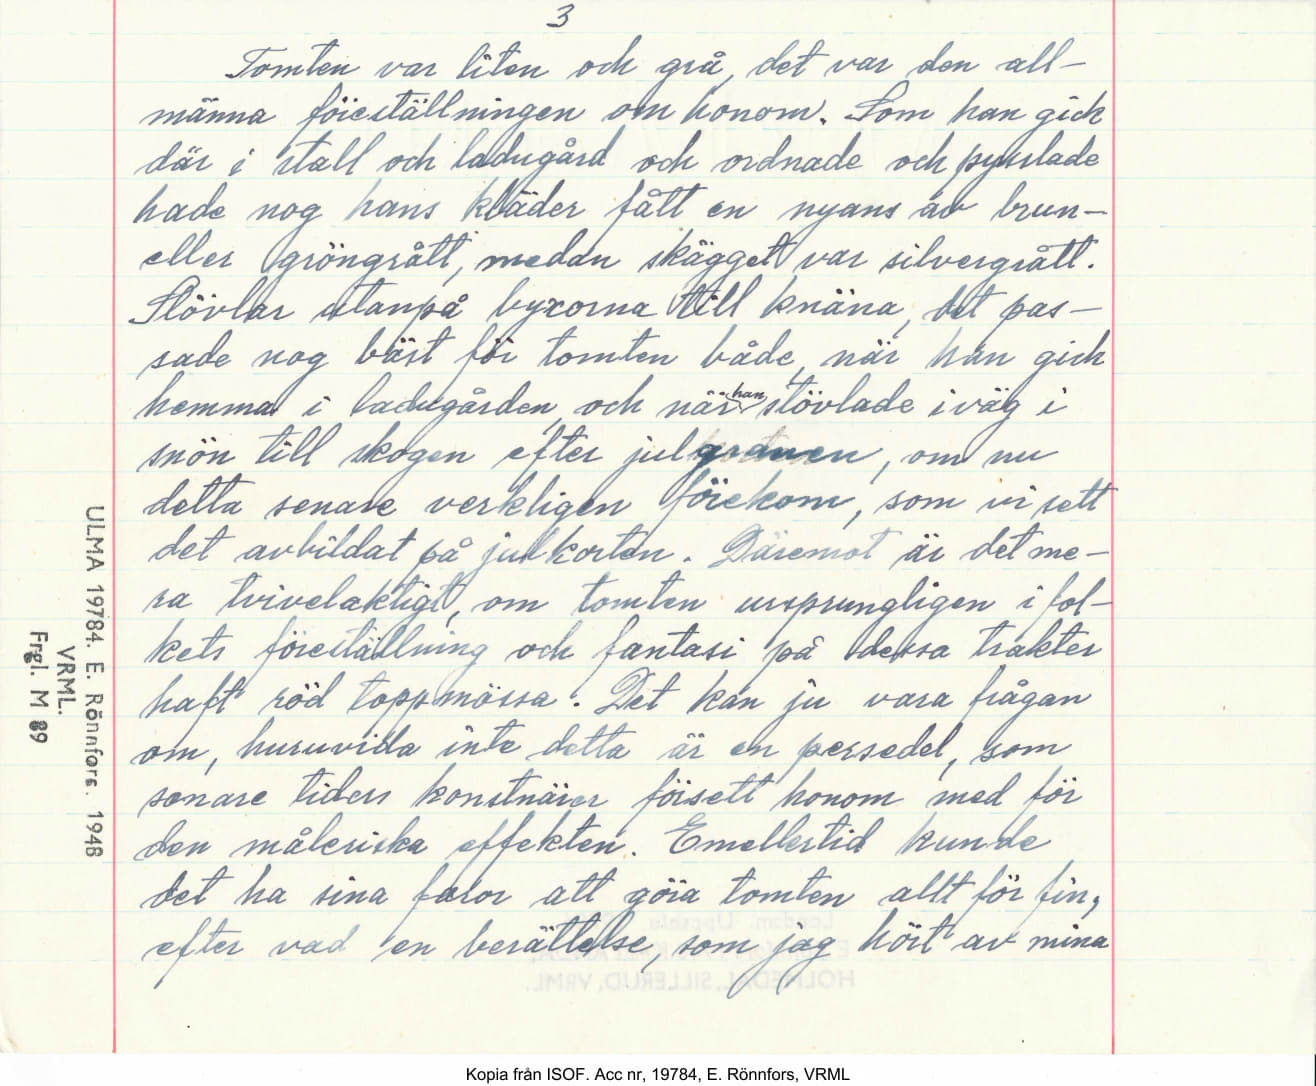 3
Tomten var liten och grå, det var den all-
männa föreställningen om honom. Som han gick
där i stall och ladugård och ordnade och pysslade
hade nog hans kläder fått en nyans av brun-
eller gröngrått, medan skägget var silvergrått.
Stövlar utanpå byxorna till knäna, det pas-
sade nog bäst för tomten både, när han gick
hemma i ladugården, och när han stövlade iväg i
snön till skogen efter julgranen, om nu
detta senare verkligen förekom, som vi sett
det avbildat på julkorten. Däremot är det me-
ra tvivelaktigt, om tomten ursprungligen i fol-
kets föreställning och fantasi på dessa trakter
haft röd toppmössa. Det kan ju vara frågan
om, huruvida inte detta är en persedel, som
senare tiders konstnärer försett honom med för
den måleriska effekten. Emellertid kunde
det ha sina faror att göra tomten allt för fin,
efter vad en berättelse, som jag hört av mina
ULMA 19784. E. Rönnfors. 1948
VRML.
Frgl. M 89
HOLMEDAL, SILLERUD, VRML.
Kopia från ISOF. Acc nr, 19784, E. Rönnfors, VRML